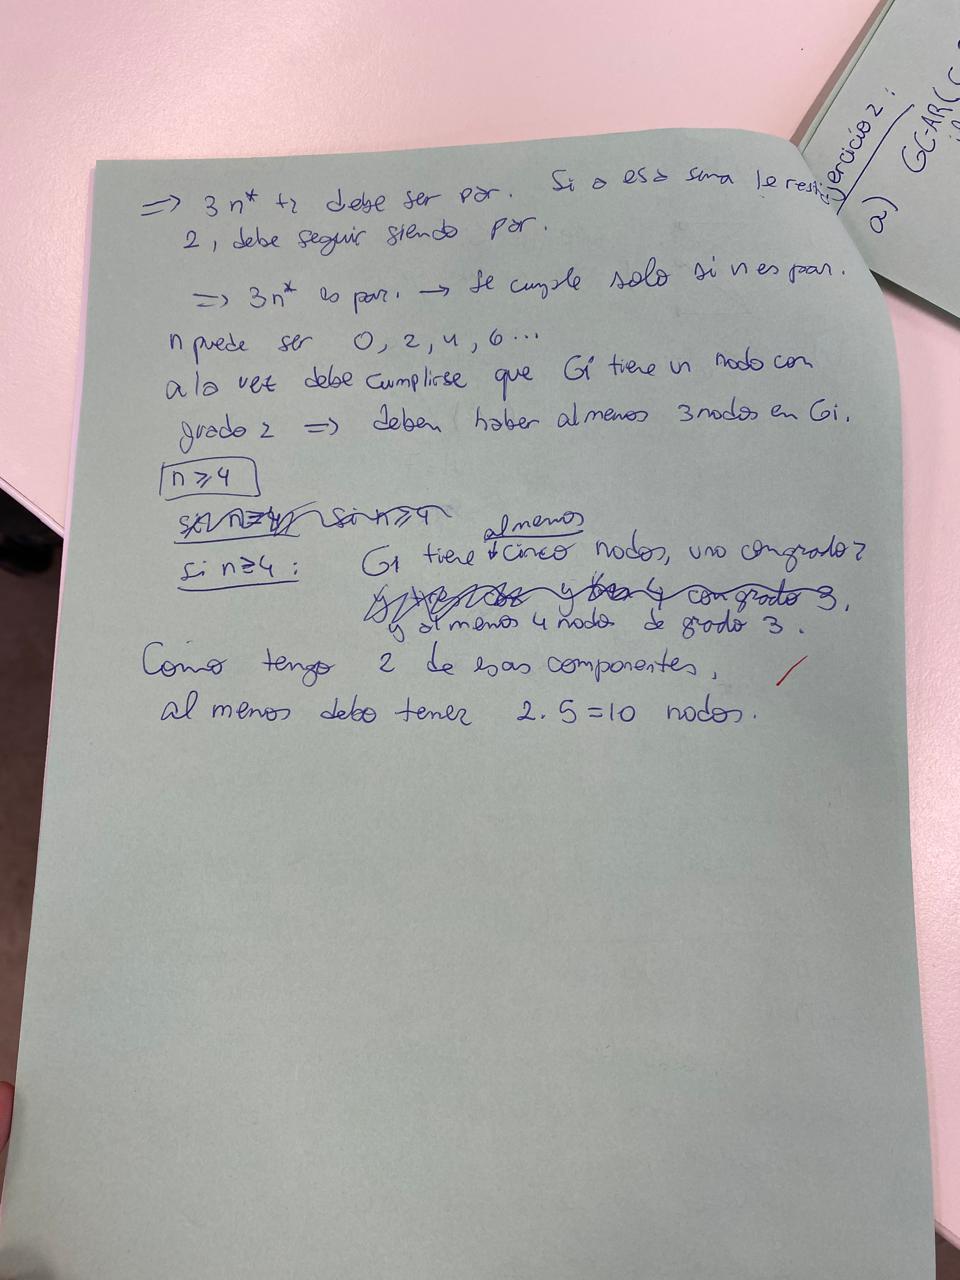 => 3n* +2 debe ser par. Si a esa suma le resti
2, debe seguir siendo par.
=> 3n* es par. → Se cumple solo si n es par.
n puede ser 0, 2, 4, 6...
a la vez debe cumplirse que Gi tiene un nodo con
grado 2 => deben haber al menos 3 nodos en Gi.
n ≥ 4
si n ≥ 4
si n ≥ 4 : G1 tiene al menos cinco nodos, uno con grado 2
y 4 con grado 3.
y al menos 4 nodos de grado 3.
Como tengo 2 de esas componentes,
al menos debo tener 2.5 = 10 nodos.
jercicio 2 :
a) GC-AR(